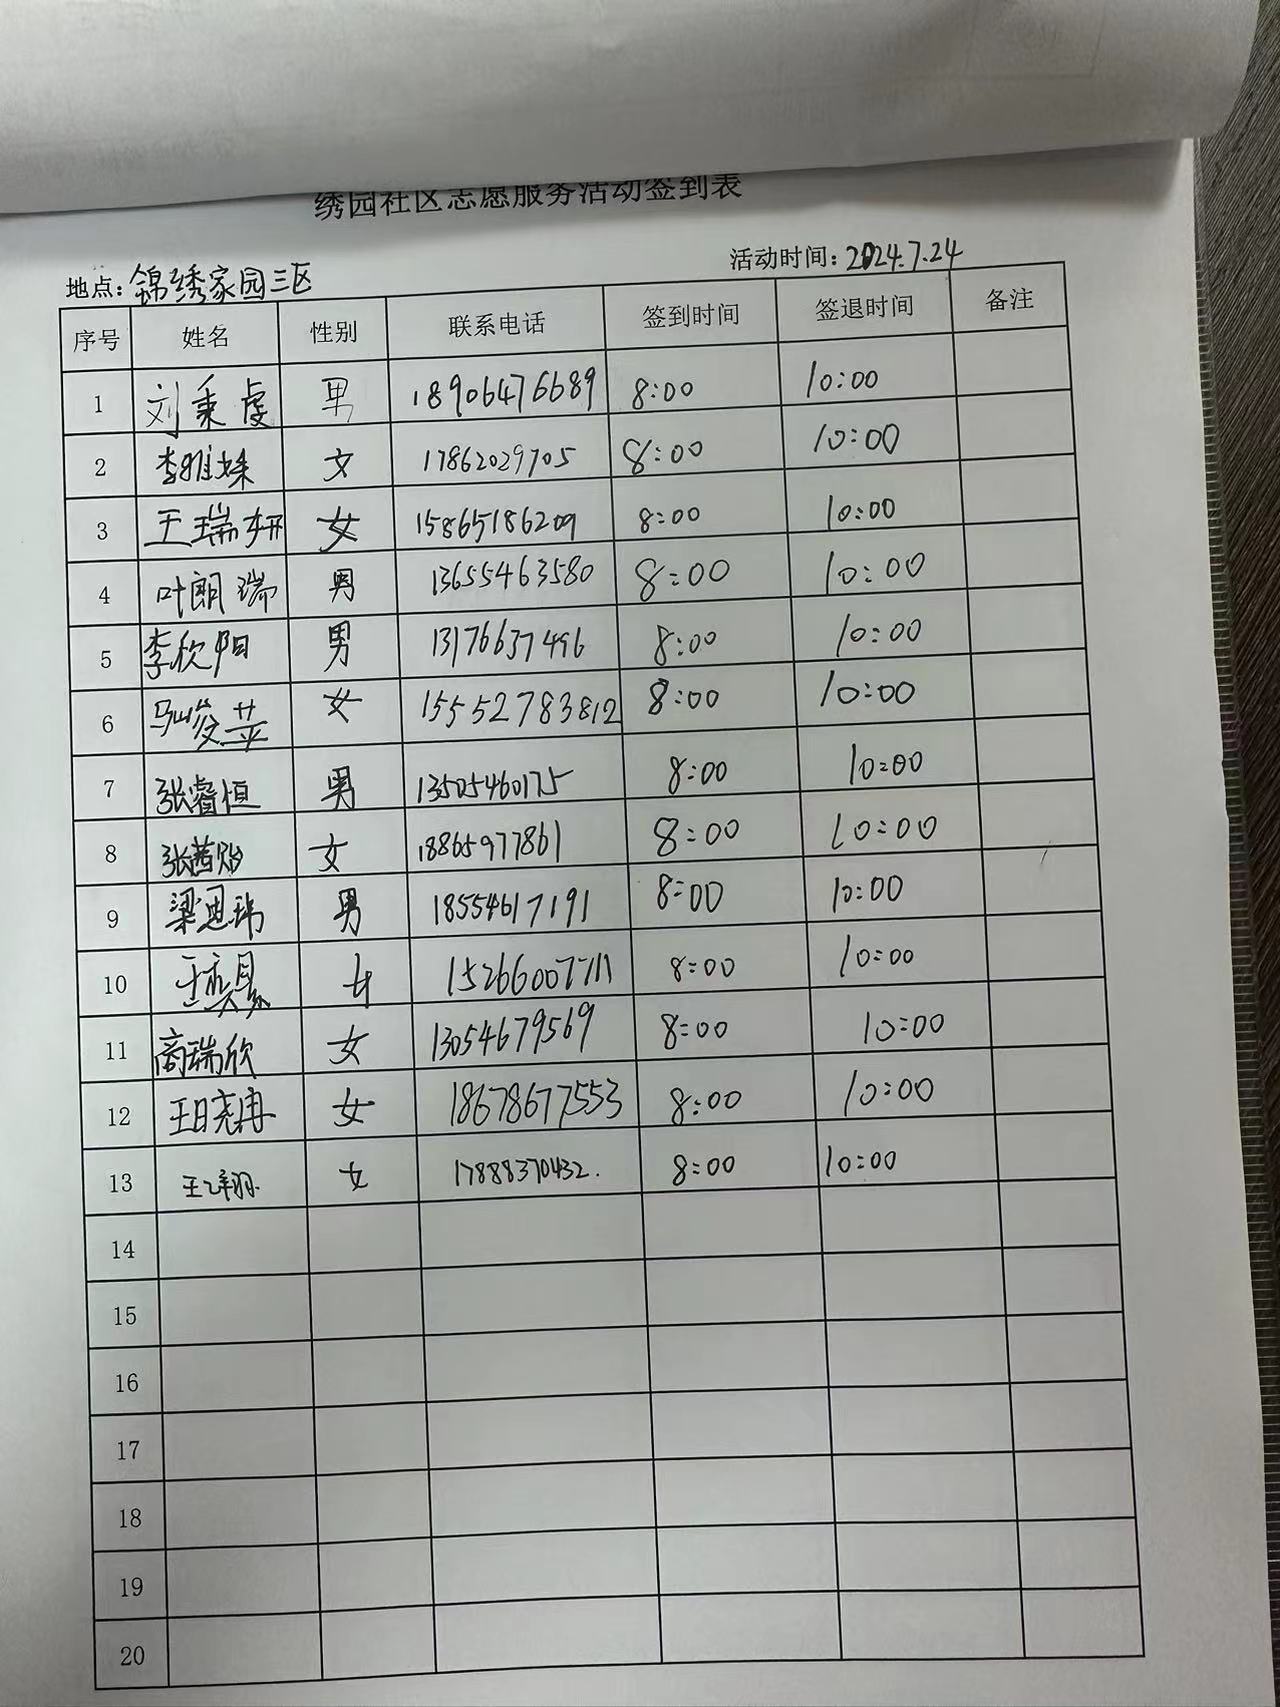 绣园社区志愿服务活动签到表
地点：锦绣家园三区 活动时间：2024.7.24
序号 姓名 性别 联系电话 签到时间 签退时间 备注
1 刘秉虔 男 18906476689 8:00 10:00
2 李雅姝 女 17862029705 8:00 10:00
3 王瑞妍 女 15865186209 8:00 10:00
4 叶朗瑞 男 13655463580 8:00 10:00
5 李欣阳 男 13176637496 8:00 10:00
6 马峻苹 女 15552783812 8:00 10:00
7 张睿恒 男 13505460175 8:00 10:00
8 张茜贻 女 18865977861 8:00 10:00
9 梁思玮 男 18554617191 8:00 10:00
10 王 女 15266007711 8:00 10:00
11 商瑞欣 女 13054679569 8:00 10:00
12 王 女 18678677553 8:00 10:00
13 王 女 17888370432. 8:00 10:00
14
15
16
17
18
19
20